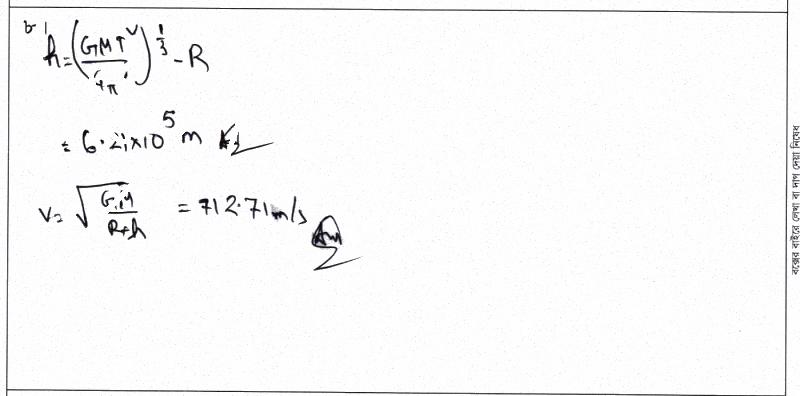 ৮।
h = (GMT²/4π²)^{1/3} - R
= 6.21×10^5 m
V = √(GM/(R+h)) = 712.71 m/s Ans
বক্সের বাইরে লেখা বা দাগ দেয়া নিষেধ